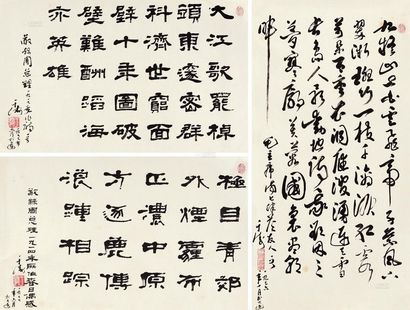 大江歌罷棹
頭東邃密群
科濟世窮面
壁十年圖破
壁難酬蹈海
亦英雄
敬錄周總理
極目青郊
外煙霾布
正濃中原
方逐鹿博
浪踵相踪
敬錄周總理一九一四年所作春日偶成
九嶷山上白雲飛帝子乘風下
翠微斑竹一枝千滴淚紅霞
萬朵百重衣洞庭波涌連天雪
長島人歌動地詩我欲因之
夢寥廓芙蓉國裏盡朝
暉
毛主席 七律答友人